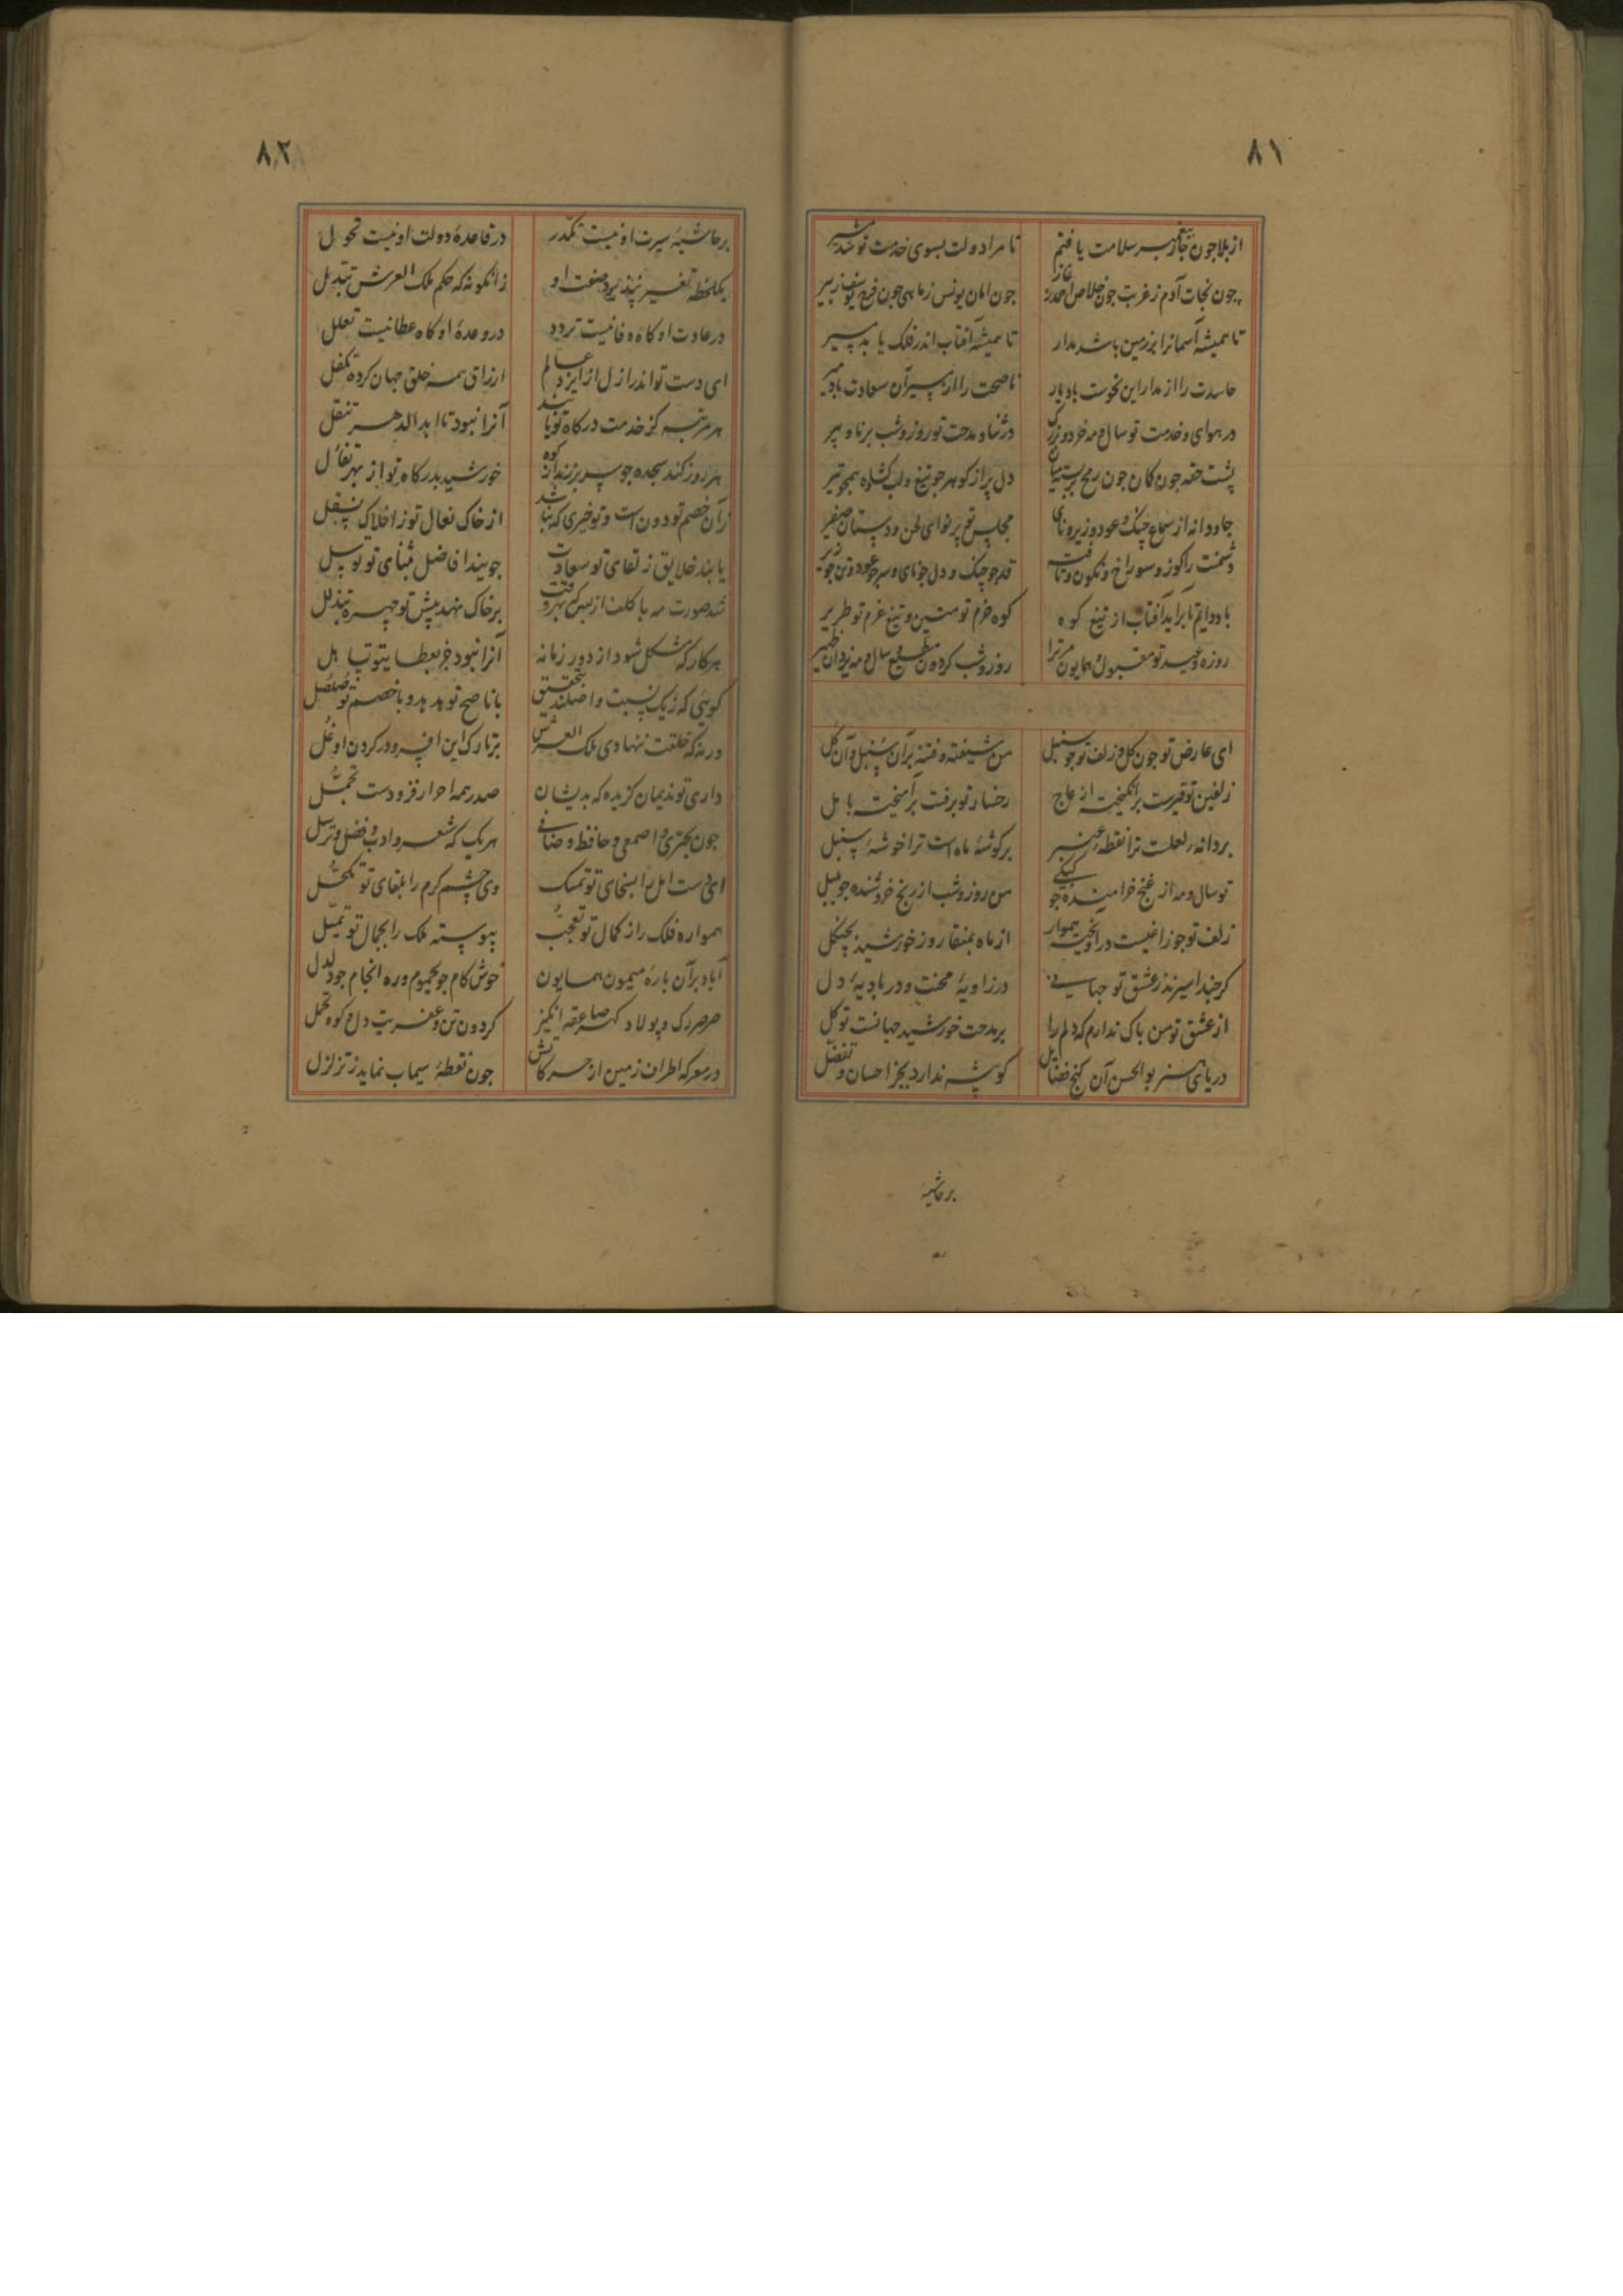 ۸۱
از بلا جون جاز پیغمبر سلامت یافتم تا مرا دولت بسوی خدمت تو شد مشیر
چون نجات آدم ز غربت جون خلاص احمد ز غار جون امان یونس ز ماهی جون فرج یوسف ز بیر
تا همیشه آسمانرا بر زمین باشد مدار تا همیشه آفتاب اندر فلک یابد مسیر
حاسدت را از مدار این نحوست باد یار ناصحت را از مسیر آن سعادت باد میر
در هوای و خدمت تو سال و مه خرد و بزرک در ثنا و مدحت تو روز و شب برنا و پیر
پشت خفه جون کمان جون رمح بر بسته میان دل پر از کوهر جو تیغ و لب کشاده همجو تیر
جاودانه از سماع جنک و عود و زیر و نای مجلس تو پر نوای لحن و دستان و صفیر
دشمنت را کوز و سوراخ و نکون و تافته قد جو چنک و دل جو نای و سر جو عود و تن جو زیر
باد دایم تا برآید آفتاب از تیغ کوه کوه حزم تو متین و تیغ عزم تو طریر
روزه و عید تو مقبول و همایون مر ترا روز و شب کردون مطیع و سال و مه یزدان ظهیر
ای عارض تو جون کل و زلف تو جو سنبل من شیفته و فتنه بر آن سنبل و آن کل
زلفین تو قیرست برانکیخته از عاج رخسار تو برفت برآمیخته با مل
بر دانه لعلست ترا نقطه عنبر بر کوشه ماه است ترا خوشه سنبل
تو سال و مه از غنج خرامنده جو کبکی من روز و شب از رنج خروشنده جو بلبل
زلف تو جو زاغیست درآویخته هموار از ماه بمنقار و ز خورشید بچنکل
کر چند اسیرند ز عشق تو جهانی در زاویه محنت و در بادیه دل
از عشق تو من باک ندارم که دلم را بر مدحت خورشید جهانست توکل
دریای هنر بو الحسن آن کنج فضایل کو پیشه ندارد بجز احسان و تفضل
بر حاشیه
۸۲
بر حاشیه سیرت او نیست تکدر در قاعده دولت او نیست تحول
یکلحظه تغیر نپذیرد صفت او زانکونه که حکم ملک العرش تبدل
در عادت او کاه وفا نیست تردد در وعده او کاه عطا نیست تعلل
ای دست تو اندر ازل از ایزد عالم ارزاق همه خلق جهان کرده تکفل
هر مرتبه کز خدمت درکاه تو یابند آنرا نبود تا ابد الدهر تنقل
هر روز کند سجده جو سر بر زند از کوه خورشید بدرکاه تو از بهر تفائل
زان خصم تو دون است و تو خیری که نباشد از خاک نعال تو ز افلاک تسفل
یابند خلایق ز لقای تو سعادت جویند افاضل بثنای تو توسل
شد صورت مه با کلف از بس که بهر وقت بر خاک نهد پیش تو چهره بتذلل
هر کار که مشکل شود از دور زمانه آنرا نبود جز بعطا یتو تسهل
کویی که ز یک نسبت و اصلند بتحقیق با ناصح تو هدهد و با خصم تو صلصل
ورنه که خلقت ننهادی ملک العرش بر تارک این افسر و در کردن او غل
داری تو ندیمان کزیده که بدیشان صدر همه احرار فزودست تجمل
جون بحتری و اصمعی و حافظ و صافی هر یک که شعر و ادب و فضل و ترسل
ای دست امل را بسخای تو تمسک وی چشم کرم را بلقای تو تکحل
همواره فلک را ز کمال تو تعجب پیوسته ملک را بجمال تو تمثل
آباد بر آن باره میمون همایون خوش کام جو یحموم و ره انجام جو دلدل
صرصر تک و پولاد کهر صاعقه انکیز کردون تن و عفریت دل و کوه تحمل
در معرکه اطراف زمین از حرکاتش جون نقطه سیماب نماید ز تزلزل